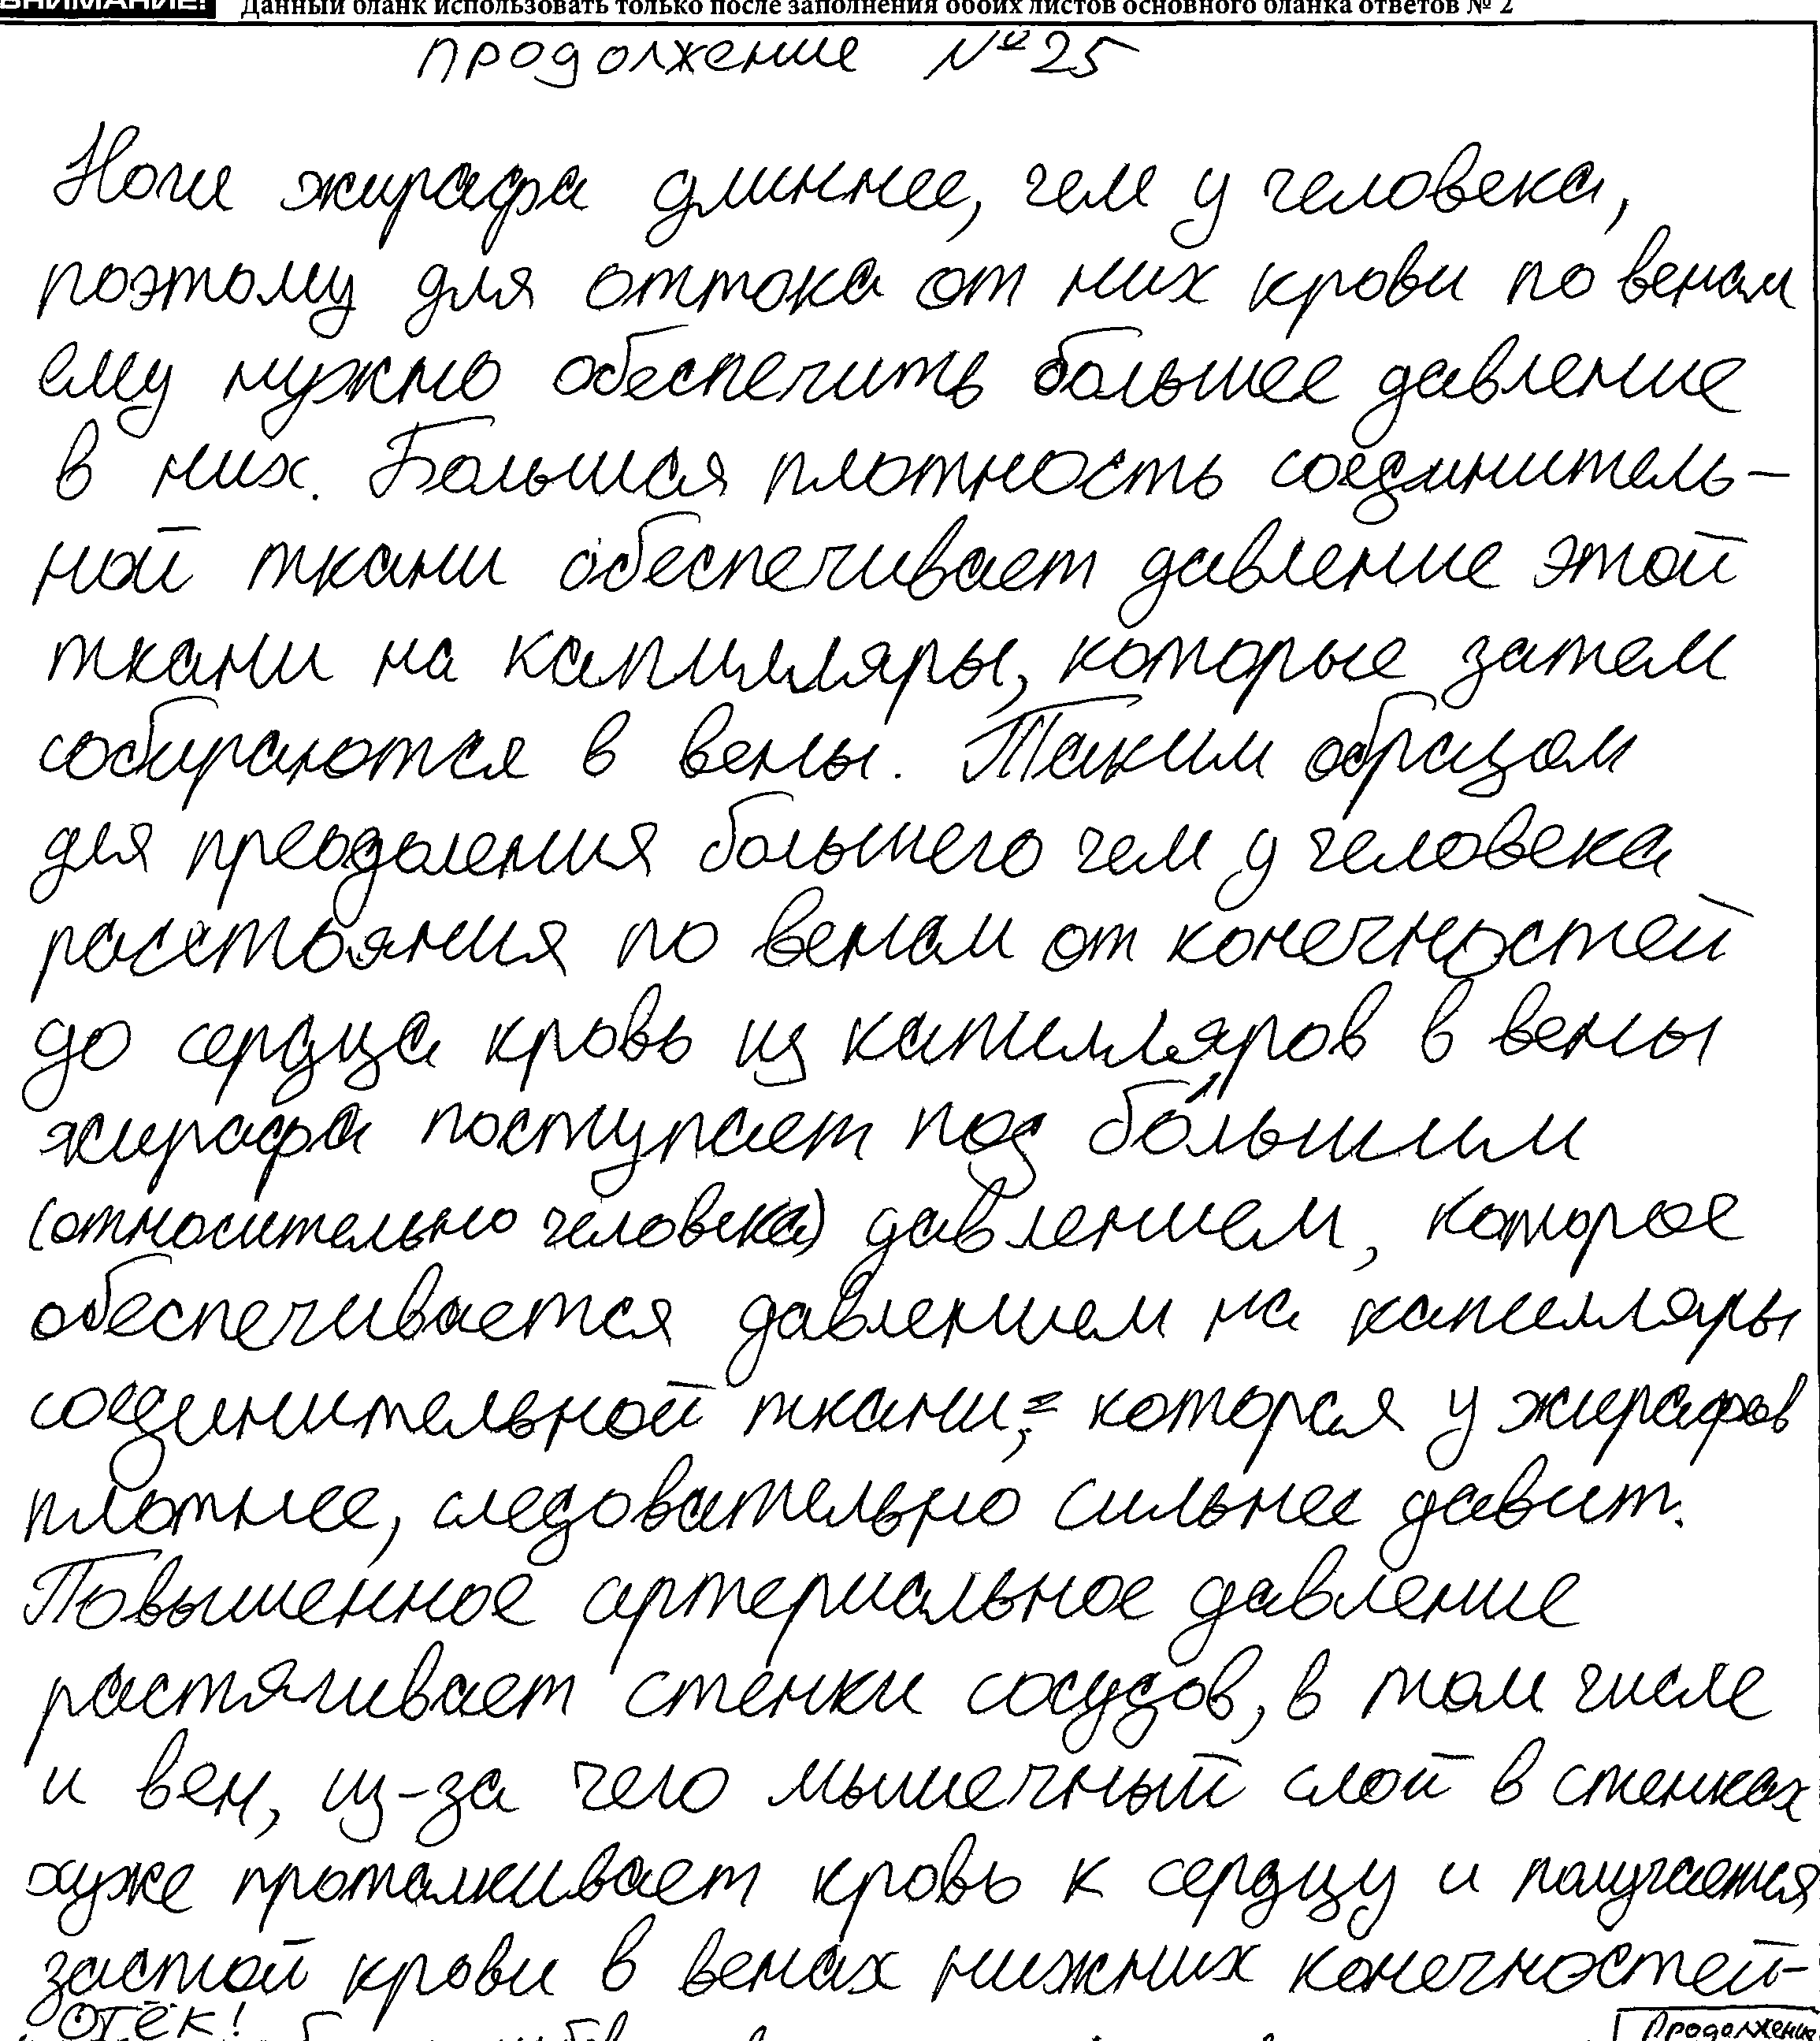 ВНИМАНИЕ! Данный бланк использовать только после заполнения обоих листов основного бланка ответов № 2
продолжение №25
Ноги жирафа длиннее, чем у человека,
поэтому для оттока от них крови по венам
ему нужно обеспечить большее давление
в них. Большая плотность соединитель-
ной ткани обеспечивает давление этой
ткани на капилляры, которые затем
собираются в вены. Таким образом
для преодоления большего чем у человека
расстояния по венам от конечностей
до сердца кровь из капилляров в вены
жирафа поступает под бо́льшим
(относительно человека) давлением, которое
обеспечивается давлением на капилляры
соединительной ткани, которая у жирафов
плотнее, следовательно сильнее давит.
Повышенное артериальное давление
растягивает стенки сосудов, в том числе
и вен, из-за чего мышечный слой в стенках
хуже проталкивает кровь к сердцу и получается
застой крови в венах нижних конечностей-
отёк!
Продолжение